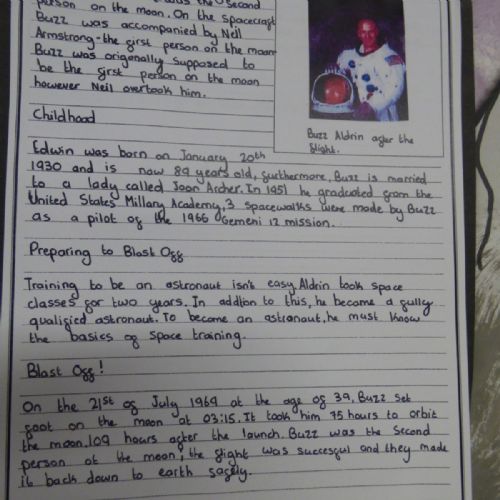 was the second
person on the moon. On the spacecraft
Buzz was accompanied by Neil
Armstrong - the first person on the moon
Buzz was origenally supposed to
be the first person on the moon
however Neil overtook him.
Buzz Aldrin after the
flight.
Childhood
Edwin was born on January 20th
1930 and is now 89 years old, furthermore, Buzz is married
to a lady called Joan Archer. In 1951 he graduated from the
United States Millary Academy, 3 spacewalks were made by Buzz
as a pilot of the 1966 Gemeni 12 mission.
Preparing to Blast Off
Training to be an astronaut isn't easy, Aldrin took space
classes for two years. In addtion to this, he become a fully
qualified astronaut. To become an astronaut, he must know
the basics of space training.
Blast Off!
On the 21st of July 1969 at the age of 39, Buzz set
foot on the moon at 03:15. It took him 75 hours to orbit
the moon, 109 hours after the launch. Buzz was the second
person ot the moon, the flight was succesful and they made
it back down to earth safely.